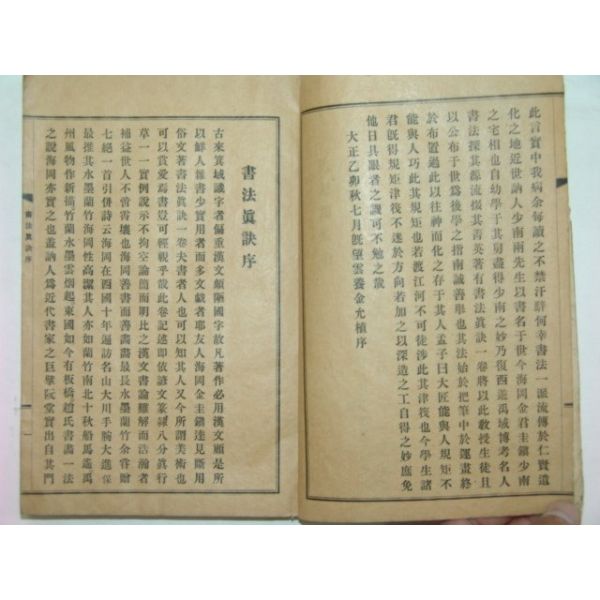 此言實中我病余每讀之不禁汗騂何幸書法一派流傳於仁賢遺
化之地近世訥人少南兩先生以書名于世今海岡金君圭鎭少南
之宅相也自幼學于其舅盡得少南之妙乃復西遊禹域博考名人
書法探其源流掇其菁英著有書法眞訣一卷將以此敎授生徒且
以公布于世爲後學之指南誠善擧也其法始於把筆中於運畫終
於布置過此以往神而化之存乎其人孟子曰大匠能與人規矩不
能與人巧此其規矩也若渡江河不可徒涉此其津筏也今學生諸
君旣得規矩津筏不迷於方向若加之以深造之工自得之妙庶免
他日具眼者之譏可不勉之哉
大正乙卯秋七月旣望雲養金允植序
書法眞訣序
古來箕域識字者偏重漢文頗陋國字故凡著作必用漢文顧是所
以鮮人雖書少實用者而多文戱者耶友人海岡金圭鎭達見斷用
俗文著書法眞訣一卷夫書者人也可以知其人又今所謂美術也
可以賞愛焉書豈可輕視乎哉此卷記述卽依諺文篆隷八分眞行
草一一實例說示不拘空論簡而明比之漢文書論難解而浩瀚者
補益世人不啻霄壤也海岡善書而善畵畵最長水墨蘭竹余嘗贈
七絕一首引倂詩云海岡在西國十年遍訪名山大川手腕大進保
最推其水墨蘭竹海岡性高潔其人亦如蘭竹南北十秋船馬遙禹
州風物作新橋竹蘭水墨雲烟起東國如今有板橋趙氏書畵一法
之說海岡亦實之也盖訥人爲近代書家之巨擘阮堂實出自其門
書法眞訣序
一